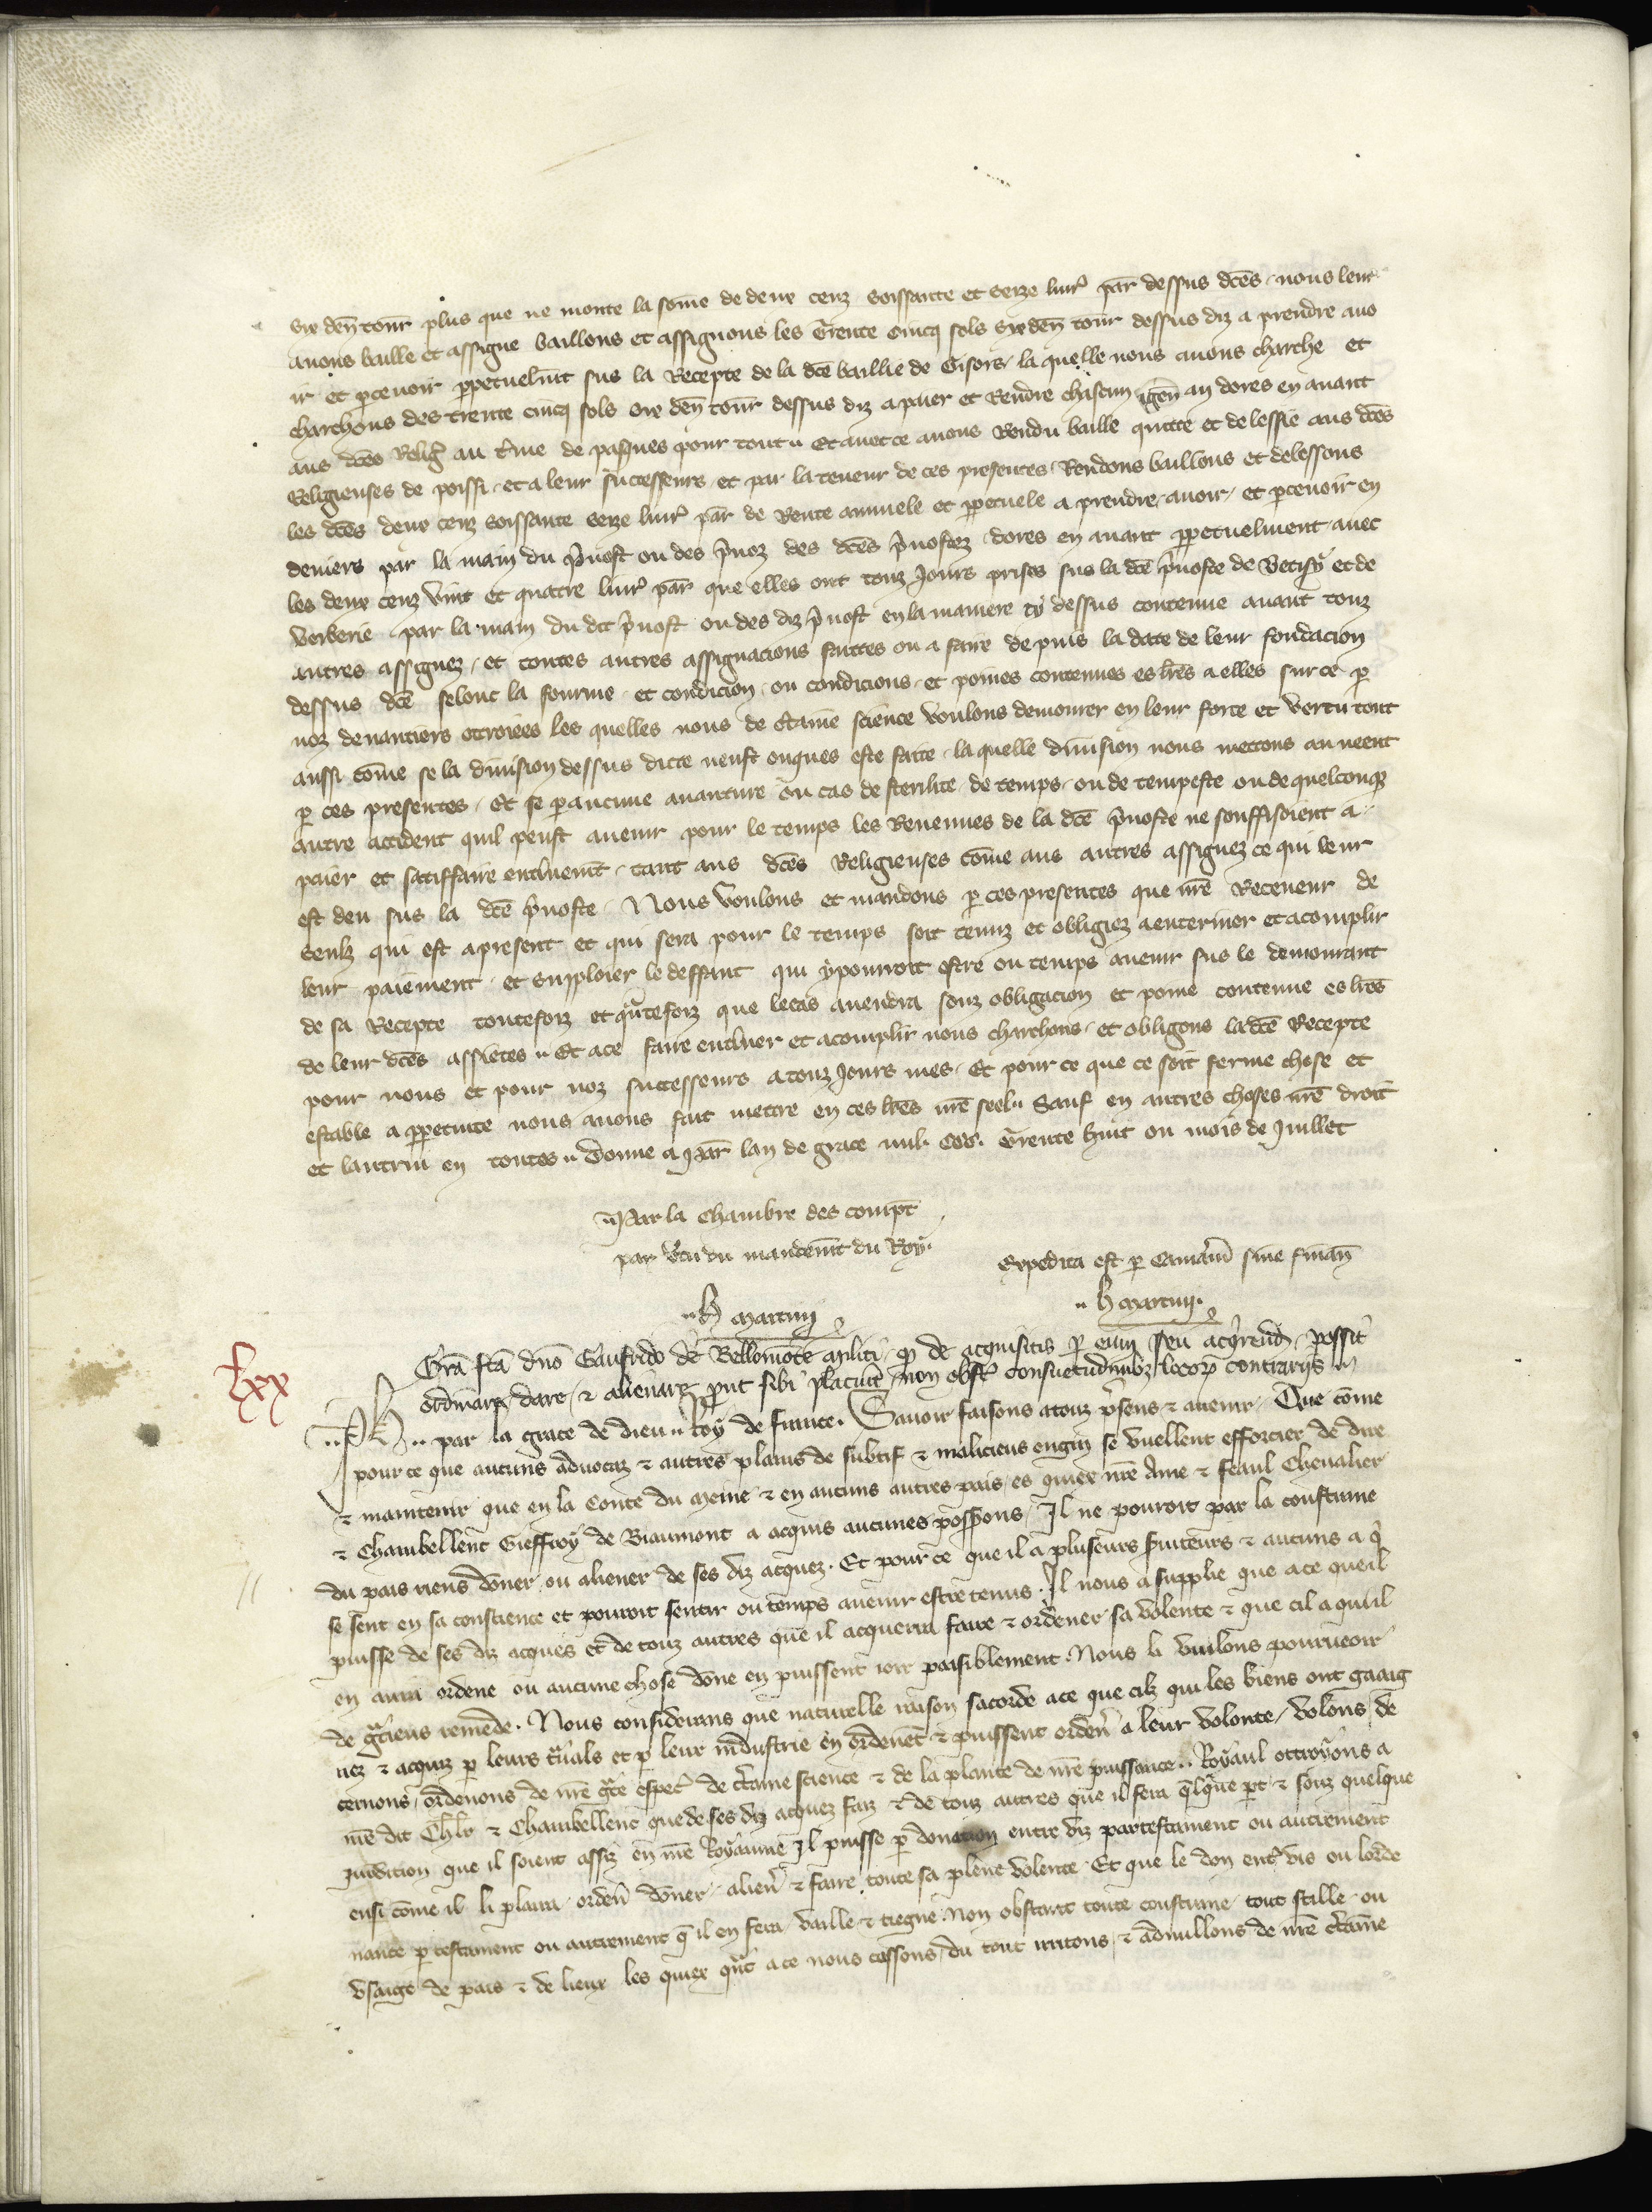 six den tour plus que ne monte la some de deux cenz soissante et seize livr par dessus dces nous leur
avons baille et assigne baillons et assignons les trente cincq sols six den tour dessus diz a prendre avo
ir et percevoir ppetuelmt sus la Recepte de la dce baillie de Gisors la quelle nous avons charche et
charchons des trente cincq sols six den tour dessus diz a paier et Rendre chascun an dores en avant
aus dces Relig au tme de pasques pour tout Et avec ce avons Rendu baille quitte et delessie aus dces
Religieuses de poissi et a leur successeurs et par la teneur de ces presentes Rendons baillons et delessons
les dces deux cenz soissante seize livr par de Rente annuele et ppetuele a prendre avoir et percevoir en
deniers par la main du pvost ou des pvoz des dces pvostez dores en avant ppetuelment avec
les deux cenz vint et quatre livr par que elles ont touz jours prises sus la dce pvoste de Betisy et de
Verberie par la main du dit pvost ou des diz pvost en la maniere cy dessus contenue avant touz
autres assignez et toutes autres assignacions faittes ou a faire de puis la date de leur fondacion
dessus dce selonc la fourme et condicion ou condicions et poines contenues es lres a elles sur ce p
noz devantiers ottroiees les quelles nous de ctaine science voulons demourer en leur force et vertu tout
aussi come se la division dessus dicte neust onques este faite la quelle division nous mettons au neent
p ces presentes Et se p aucune avanture ou cas de sterilite de temps ou de tempeste ou de quelconq
autre accident quil peust avenir pour le temps les Revenues de la dce pvoste ne souffisoient a
paier et satiffaire entierement tant aus dces Religieuses come aus autres assignez ce qui leur
est deu sus la dce pvoste Nous voulons et mandons p ces presentes que nre Receveur de
Senliz qui est a present et qui sera pour le temps soit tenuz et obligiez a enteriner et acomplir
leur paiement et emploier le deffaut qui y pourroit estre ou temps avenir sus le demourant
de sa Recepte toutefoiz et qntefoiz que le cas avendra souz obligacion et poine contenue es lres
de leur dces assietes Et a ce faire enteriner et acomplir nous charchons et obligons la dce Recepte
pour nous et pour noz successeurs a touz jours mes Et pour ce que ce soit ferme chose et
estable a ppetuite nous avons fait mettre en ces lres nre seel Sauf en autres choses nre droit
et lautrui en toutes Donne a Par lan de grace mil CCC Trente huit ou mois de Juillet
Par la Chambre des compt
par vtu du mandemt du Roy
Expedita est p Camam sine finan
H Martin
H Martin
Gra fca dno Gaufrido de Bellomote militi q de acquisitis p eum seu acqrend possit
lxx
ordinare dare & alienare put sibi placuit non obst consuetudinibz locor contrariis
Ph par la grace de dieu Roy de france Savoir faisons a touz psens & avenir Que come
pour ce que aucuns advocaz & autres plains de subtif & malicieus engin se vuellent efforcier de dire
& maintenir que en la Conte du Meine & en aucuns autres pais es quiex nre Ame & feaul Chevalier
& Chambellenc Gieffroy de Biaumont a acquis aucunes possions Il ne pouroit par la coustume
du pais riens doner ou aliener de ses diz acquez Et pour ce que il a pluseurs sviteurs & aucuns a q
se sent en sa conscience et pouroit sentir ou temps avenir estre tenus Il nous a supplie que a ce que il
puisse de ses diz acques et de touz autres que il acquerra faire & ordener sa volente & que cil a qui il
en aura ordene ou aucune chose done en puissent ioir paisiblement Nous li vuilons pourveoir
de gcieus remede Nous considerans que naturelle raison sacorde a ce que cilz qui les biens ont gaaig
nez & acquiz p leurs travals et p leur industrie en ordenent & puissent orden a leur volonte volons de
cernons ordenons de nre gce espec de ctaine science & de la plante de nre puissance Royaul ottroyons a
nre dit Chlr & Chambellenc que de ses diz acquez faiz & de touz autres que il fera qlque pt & souz quelque
iuridition que il soient assiz en nre Royaume Il puisse p donation entre viz par testament ou autrement
ensi come il li plaira orden doner alien & faire toute sa plene volente Et que le don ent vis ou lorde
nance p testament ou autrement q il en fera vaille & tiegne Non obstant toute coustume tout stille ou
usaige de pais & de lieux les quiex qnt a ce nous cassons du tout irritons & adnullons de nre ctaine